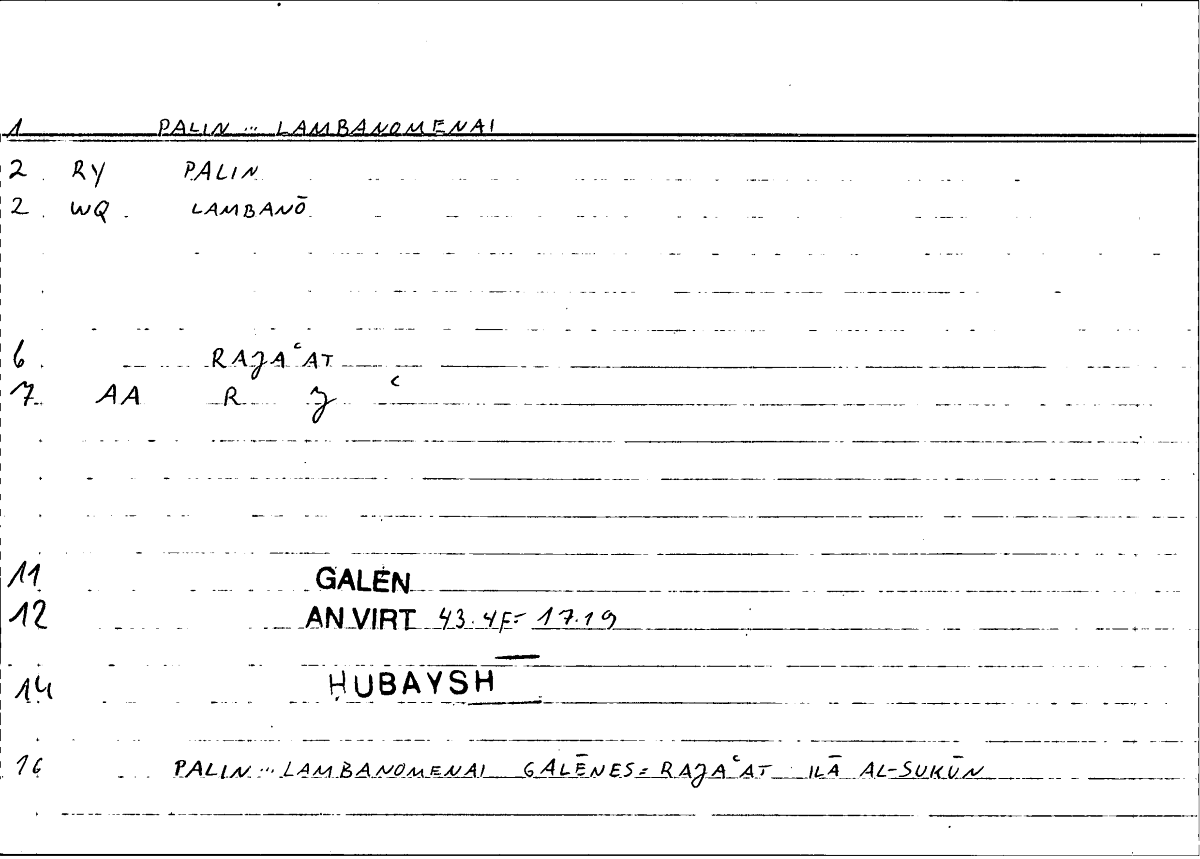 1 PALIN ... LAMBANOMENAI
2 RY PALIN
2 WQ LAMBANŌ
6 RAJAʿAT
7 AA R J ʿ
11 GALEN
12 AN VIRT 43.4F= 17.19
14 ḤUBAYSH
16 PALIN ... LAMBANOMENAI GALĒNES = RAJAʿAT ILĀ AL-SUKŪN